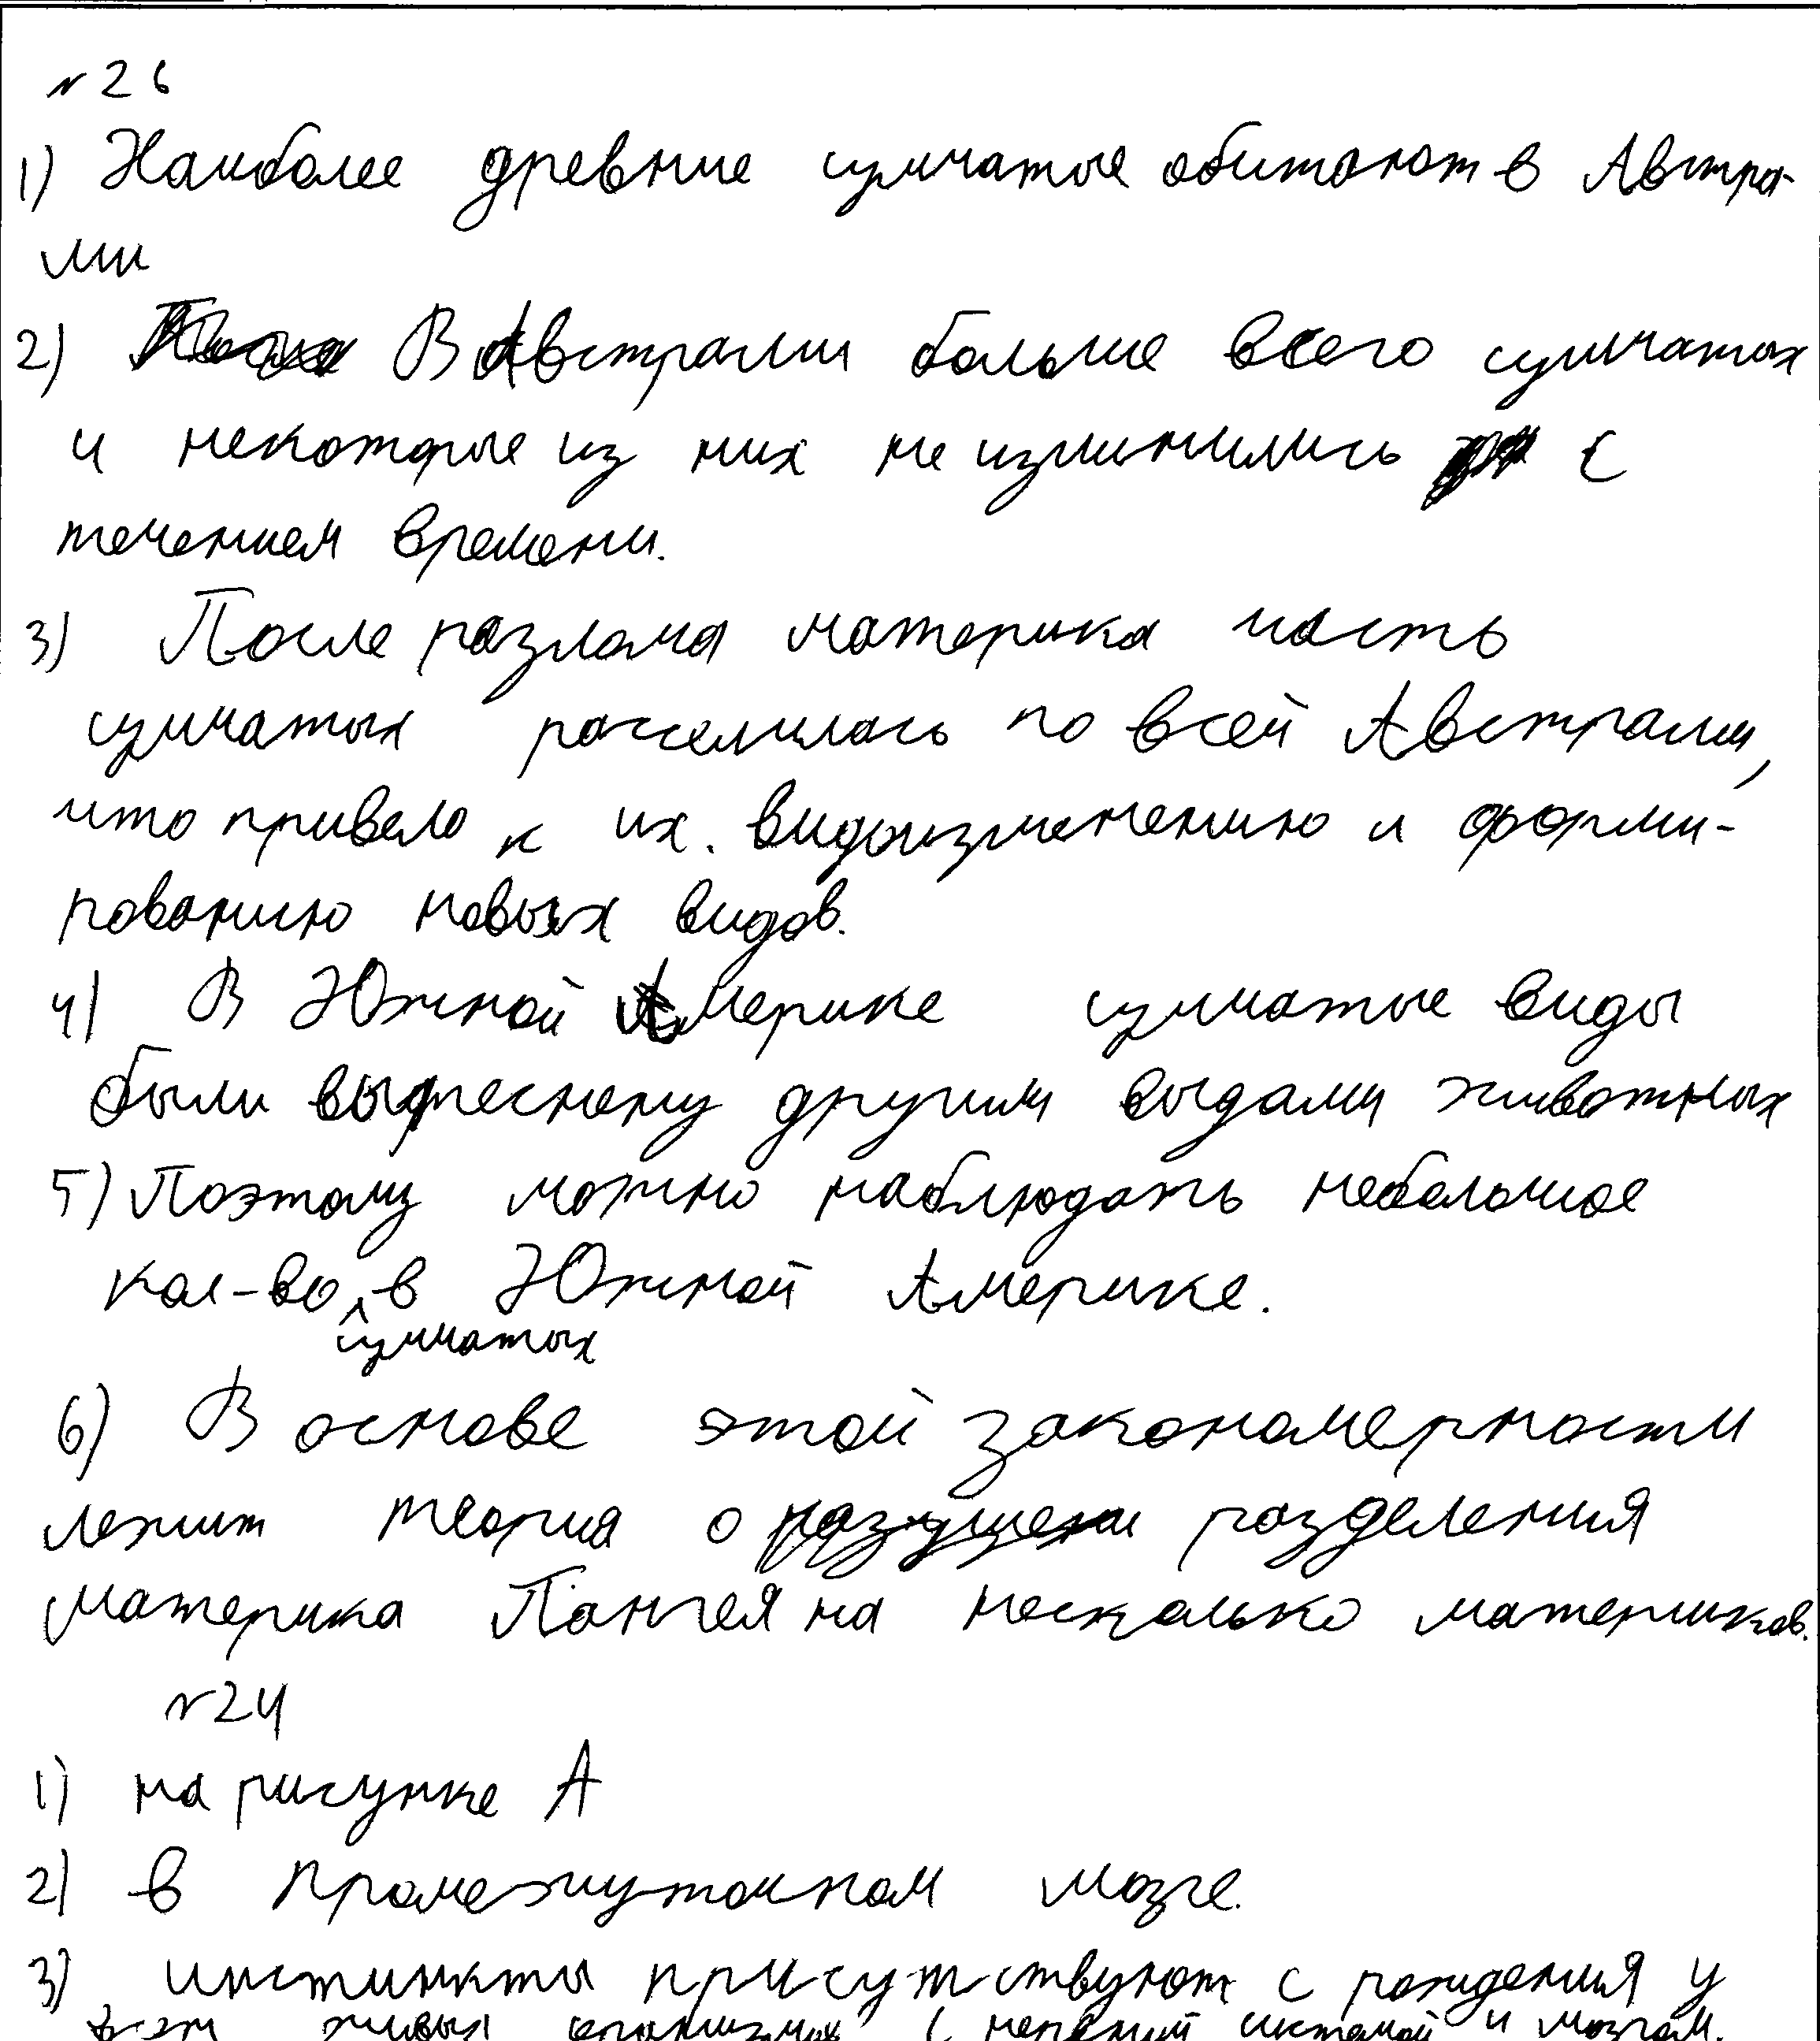 №26
1) Наиболее древние сумчатые обитают в Австра-
лии
2) В Австралии больше всего сумчатых
и некоторые из них не изменились с
течением времени.
3) После разлома материка часть
сумчатых расселилась по всей Австралии,
что привело к их видоизменению и форми-
рованию новых видов.
4) В Южной Америке сумчатые виды
были другими видами животных
5) Поэтому можно наблюдать небольшое
кол-во сумчатых в Южной Америке.
6) В основе этой закономерности
лежит теория о разделения
материка Пангея на несколько материков.
№24
1) на рисунке А
2) в промежуточном мозге.
3) инстинкты присутствуют с рождения у
всех живых организмов с нервной системой и мозгом.